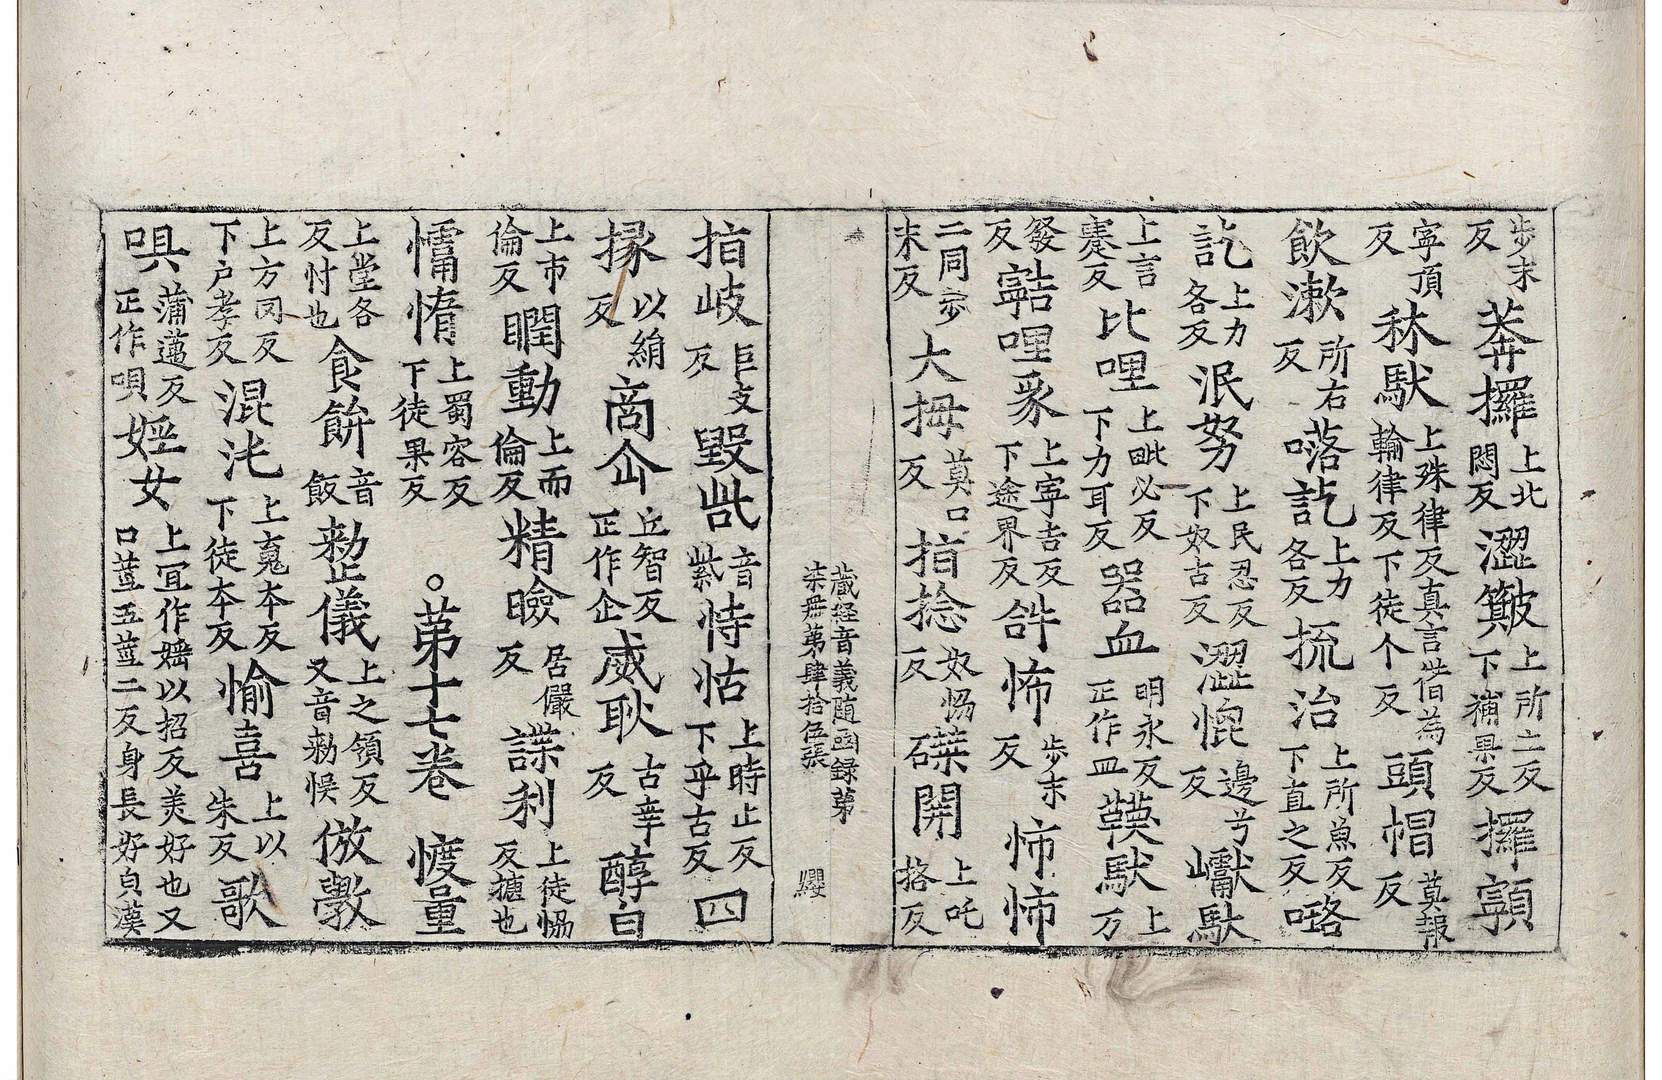 步末反 莽攞 上北悶反 澀簸 上所立反下補果反 攞顐
寜頂反 秫馱 上殊律反真言借為輸律反下徒个反 頭帽 莫報反
飲漱 所右反 㗉訖 上力各反 捖治 上所魚反下直之反 㗉
訖 上力各反 泯努 上民忍反下奴古反 澀㥓 邊兮反 巘馱
上言蹇反 比哩 上毗必反下力耳反 器血 明永反正作皿 韈馱 上万
發反 哩豕 上寜吉反下途界反 㖿怖 步末反 怖怖
二同步末反 大拇 莫口反 指捻 奴恊反 磔開 上吒挌反
藏經音義随函録第
柒冊第肆拾伍張 纓
指岐 巨支反 毀呰 音紫 恃怙 上時止反下乎古反 四
掾 以絹反 商仚 丘智反正作企 威耿 古幸反 醇白
上市倫反 瞤動 上而倫反 精瞼 居儼反 諜利 上徒恊反𢯱也
懦惰 上蜀容反下徒果反 。第十七卷 㦜量
上堂各反忖也 食餅 音飯 整儀 上之領反又音勑悮 倣斅
上方罔反下户孝反 混沌 上䰟本反下徒本反 愉喜 上以朱反 歌
唄 蒲邁反正作唄 婬女 上冝作媱以招反美好也又口莖五莖二反身長好皃漢